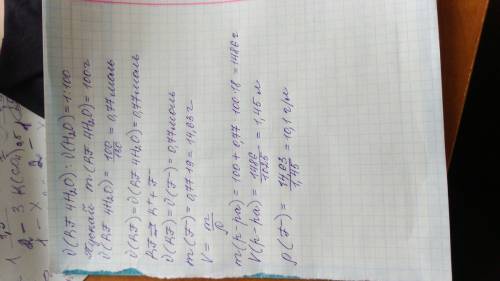 ϑ(RF·4H₂O) : ϑ(H₂O) = 1:100
m(RF·4H₂O) = 100г
ϑ(RF·4H₂O) = 100/130 = 0,77моль
ϑ(RF) = ϑ(RF·4H₂O) = 0,77моль
RF ⇄ R⁺ + F⁻
ϑ(RF) = ϑ(F⁻) = 0,77моль
m(F⁻) = 0,77·19 = 14,63г
V = m/ρ
m(р-ра) = 100 + 0,77·100·18 = 1486г
V(р-ра) = 1486/1025 = 1,45л
ρ(F⁻) = 14,63/1,45 = 10,1 г/л